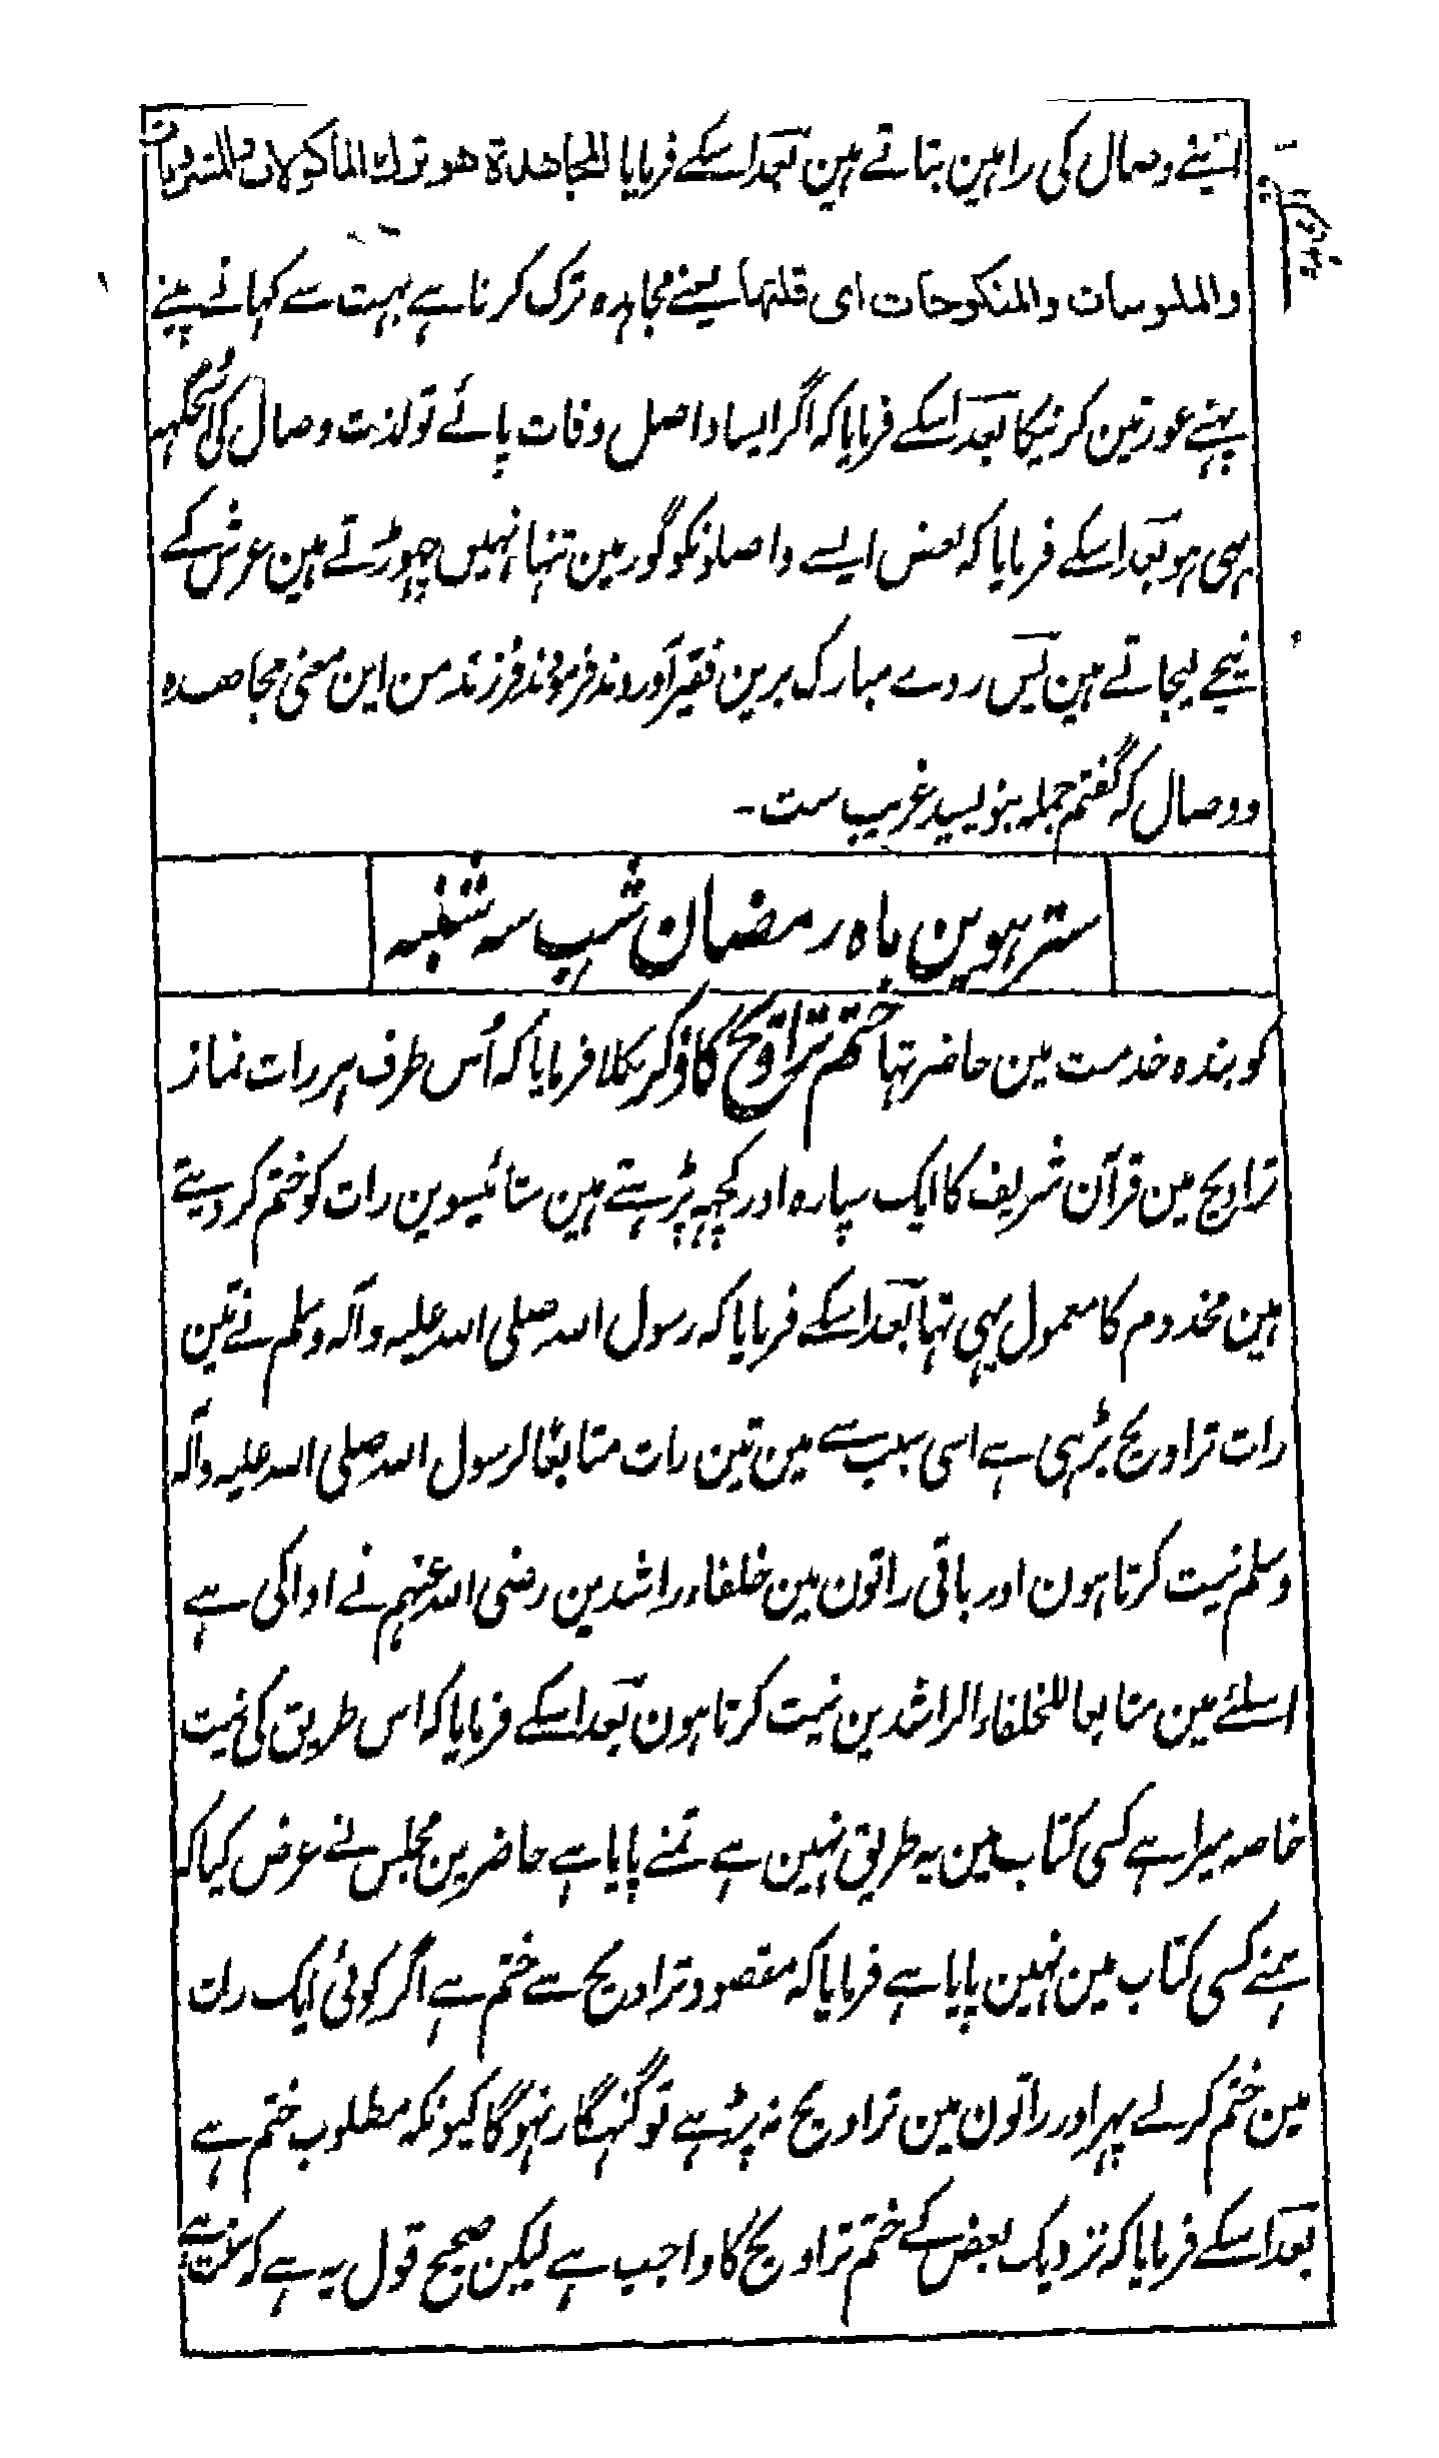 اپنے وصال کی راہین بتاتے ہین بعد اسکے فرمایا المجاهدة هو ترك الماكولات والمشروبات
والملبوسات والمنكوحات ای قلتها یعنے مجاہدہ ترک کرنا ہے بہت سے کہانے پینے
پہننے عورتین کرنیکا بعد اسکے فرمایا کہ اگر ایسا واصل وفات پائے تو لذت وصال کی
ہی ہو بعد اسکے فرمایا کہ بعض ایسے واصلونکو گور مین تنہا نہیں چھوڑتے ہین عرش کے
نیچے لیجاتے ہین پس روے مبارک برین فقیر آوردند فرمودند فرزند من این معنی مجاهده
و وصال کہ گفتم جملہ بنویسید غریب ست۔
سترہوین ماہ رمضان شب سہ شنبہ
کو بندہ خدمت مین حاضر تہا ختم تراویح کا ذکر نکلا فرمایا کہ اُس طرف ہر رات نماز
تراویح مین قرآن شریف کا ایک سپارہ اور کچہہ پڑہتے ہین ستائیسوین رات کو ختم کر دیتے
ہین مخدوم کا معمول یہی تہا بعد اسکے فرمایا کہ رسول اللہ صلی اللہ علیہ وآلہ وسلم نے تین
رات تراویح پڑہی ہے اسی سبب سے مین تین رات متابعًا لرسول اللہ صلی اللہ علیہ وآلہ
وسلم نیت کرتا ہون اور باقی راتون مین خلفاء راشدین رضی اللہ عنہم نے ادا کی ہے
اسلئے مین متابعا للخلفاء الراشدین نیت کرتا ہون بعد اسکے فرمایا کہ اس طریق کی نیت
خاصہ میرا ہے کسی کتاب مین یہ طریق نہین ہے تمنے پایا ہے حاضرین مجلس نے عرض کیا کہ
ہمنے کسی کتاب مین نہین پایا ہے فرمایا کہ مقصود تراویح سے ختم ہے اگر کوئی ایک رات
مین ختم کر لے پہر اور راتون مین تراویح نہ پڑہے تو گنہگار نہوگا کیونکہ مطلوب ختم ہے
بعد اسکے فرمایا کہ نزدیک بعض کے ختم تراویح کا واجب ہے لیکن صحیح قول یہ ہے کہ سنت ہے